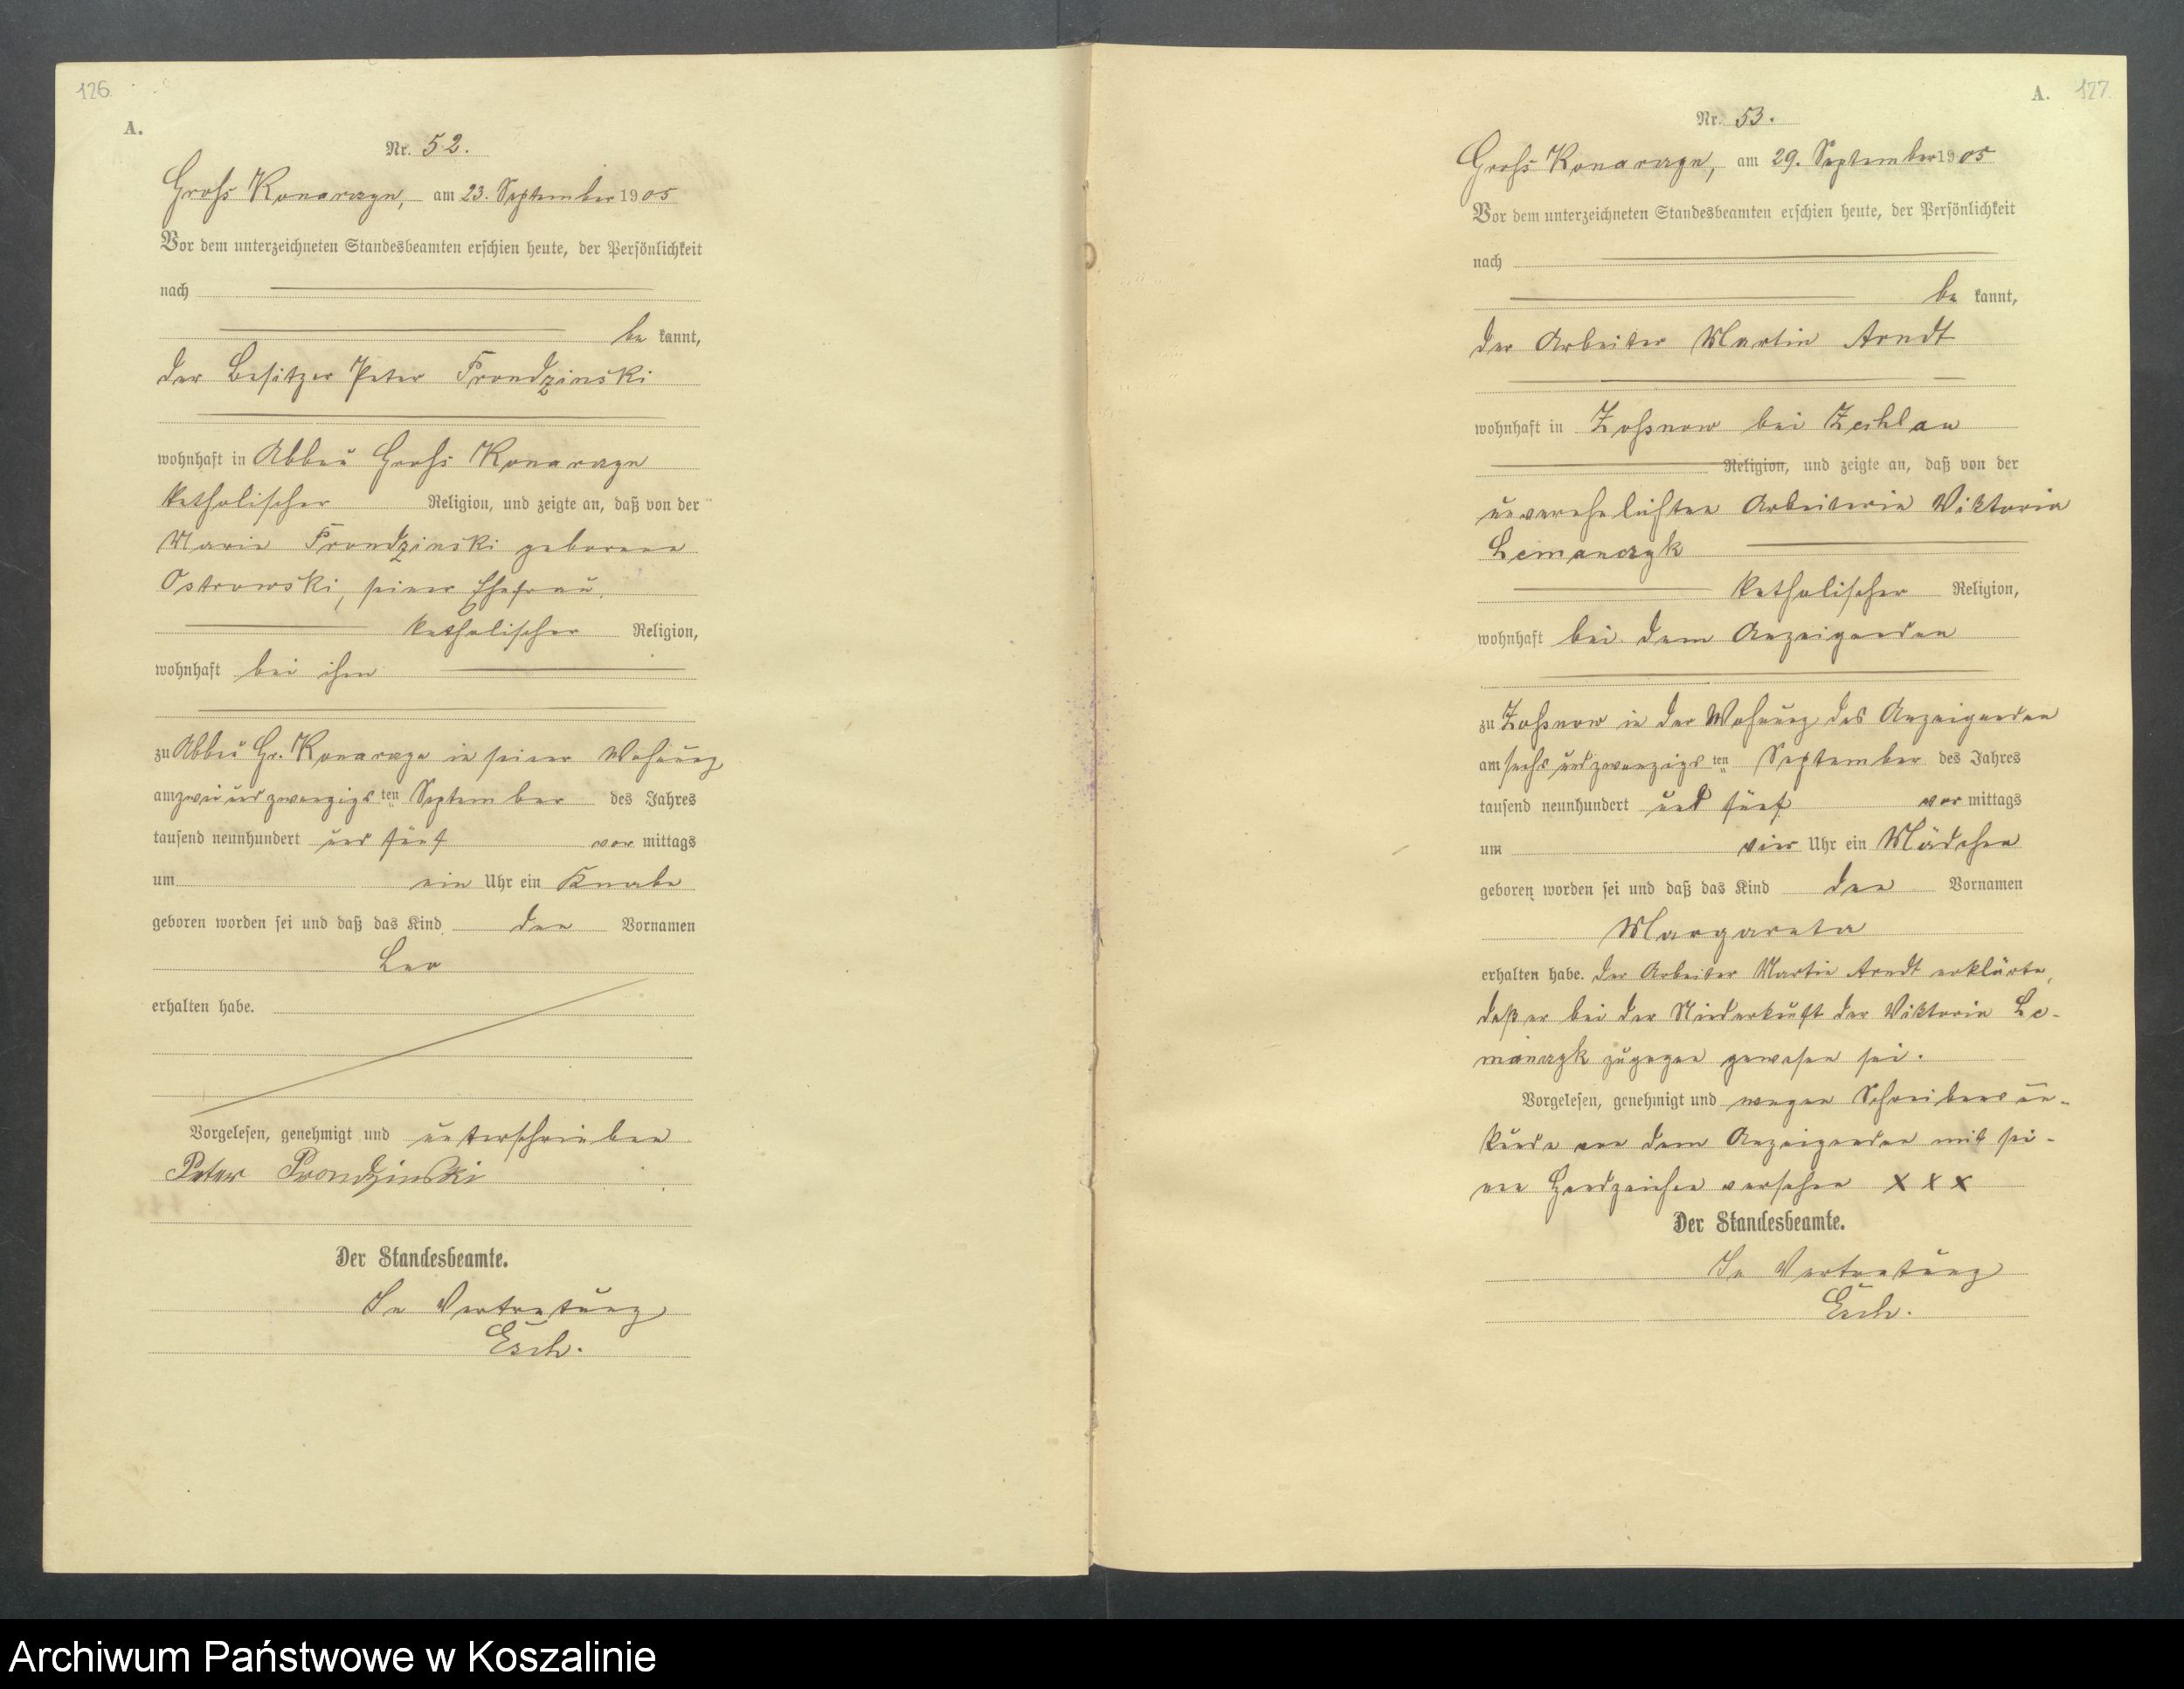 126.
A.
Nr. 52.
Groß Konarczyn, am 23. September 1905
Vor dem unterzeichneten Standesbeamten erschien heute, der Persönlichkeit
nach
be kannt,
der Besitzer Peter Prondzinski
wohnhaft in Abbau Groß Konarczyn
katholischer Religion, und zeigte an, daß von der
Marie Prondzinski geborene
Ostrowski, seiner Ehefrau,
katholischer Religion,
wohnhaft bei ihm
zu Abbau Gr. Konarczyn in seiner Wohnung
am zwei und zwanzigsten September des Jahres
tausend neunhundert und fünf vor mittags
um ein Uhr ein Knabe
geboren worden sei und daß das Kind den Vornamen
Leo
erhalten habe.
Vorgelesen, genehmigt und unterschrieben
Peter Prondzinski
Der Standesbeamte.
In Vertretung
Esch.
A. 127.
Nr. 53.
Groß Konarczyn, am 29. September 1905
Vor dem unterzeichneten Standesbeamten erschien heute, der Persönlichkeit
nach
be kannt,
der Arbeiter Martin Arndt
wohnhaft in Zoßnow bei Zechlau
Religion, und zeigte an, daß von der
unverehelichten Arbeiterin Viktoria
Lemanczyk
katholischer Religion,
wohnhaft bei dem Anzeigenden
zu Zoßnow in der Wohnung des Anzeigenden
am sechs und zwanzigsten September des Jahres
tausend neunhundert und fünf vor mittags
um vier Uhr ein Mädchen
geboren worden sei und daß das Kind den Vornamen
Margareta
erhalten habe. Der Arbeiter Martin Arndt erklärte,
daß er bei der Niederkunft der Viktoria Le-
manczyk zugegen gewesen sei.
Vorgelesen, genehmigt und wegen Schreibens un-
kunde von dem Anzeigenden mit sei-
nen Handzeichen versehen x x x
Der Standesbeamte.
In Vertretung
Esch.
Archiwum Państwowe w Koszalinie